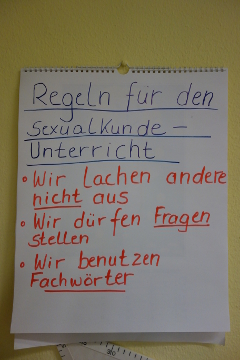 Regeln für den
Sexualkunde-
Unterricht
• Wir lachen andere
nicht aus
• Wir dürfen Fragen
stellen
• Wir benutzen
Fachwörter